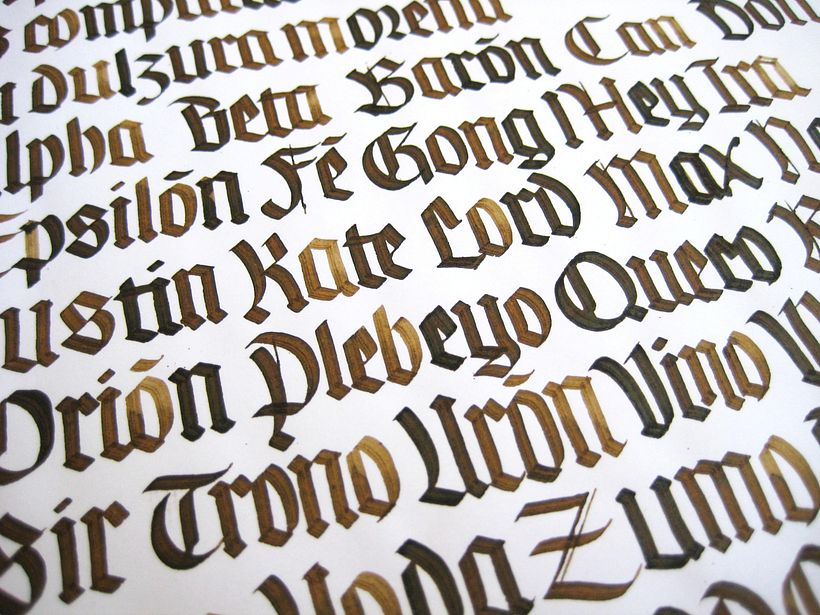 dulzura morena
Alpha Beta Barón Can Don
Epsilón Fé Gong Hey Ira
Justin Kate Lord Max
Orión Plebeyo Queco
Sir Trono Urón Vino
Zumo